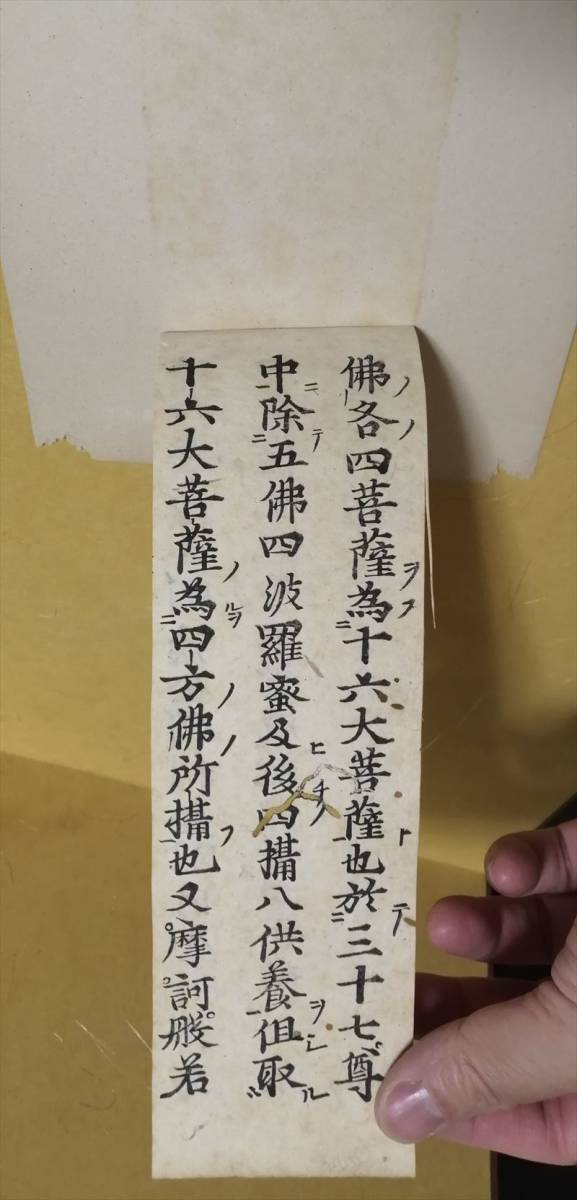 佛各四菩薩為十六大菩薩也於三十七尊
中除五佛四波羅蜜及後四攝八供養但取
十六大菩薩為四方佛所攝也又摩訶般若